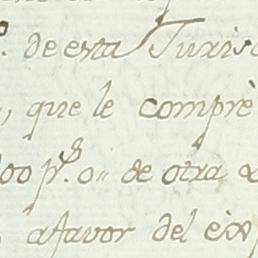 de esta Juris
, que le comprè
00 p.s o,, de otra
afavor del exp